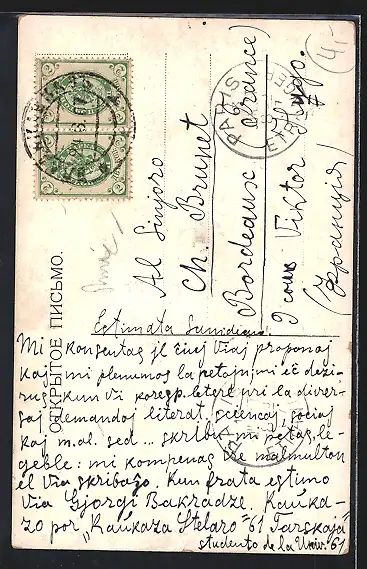 ОТКРЫТОЕ ПИСЬМО.
Al Sinjoro
Ch. Brunet
Bordeaux (France)
9 cours Viktor Hugo.
(Франція)
PARIS
ETRANGER
41-
Estimata Samideano
Mi konsentas jl ĉiuj Viaj proponaj
kaj mi plenumos la petojn; mi eĉ dezi-
rus kun Vi koresp. letere pri la diver-
saj demandoj literat. sciencaj, sociaj
kaj m. al. sed... skribu mi petas, le-
geble: mi kompenas ne malmulton
el Via skribaĵo. Kun frata estimo
Via Gjorgi Bakradze. Kaŭka-
zo por „Kaŭkaza Stelaro" 61 Tarskaja
studento de la Univ. 61